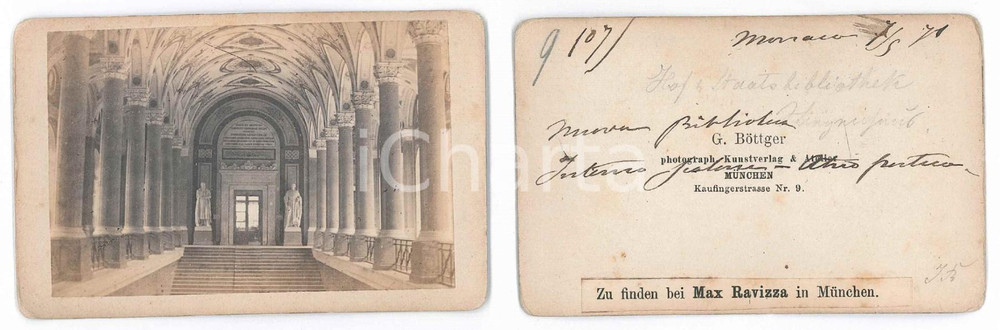 iCharta
9 107
Monaco 7/5 71
Hof & Staatsbibliothek
Nuova Biblioteca
G. Böttger
photograph. Kunstverlag & Atelier
MÜNCHEN
Interno scalone - Atrio
Kaufingerstrasse Nr. 9.
Zu finden bei Max Ravizza in München.